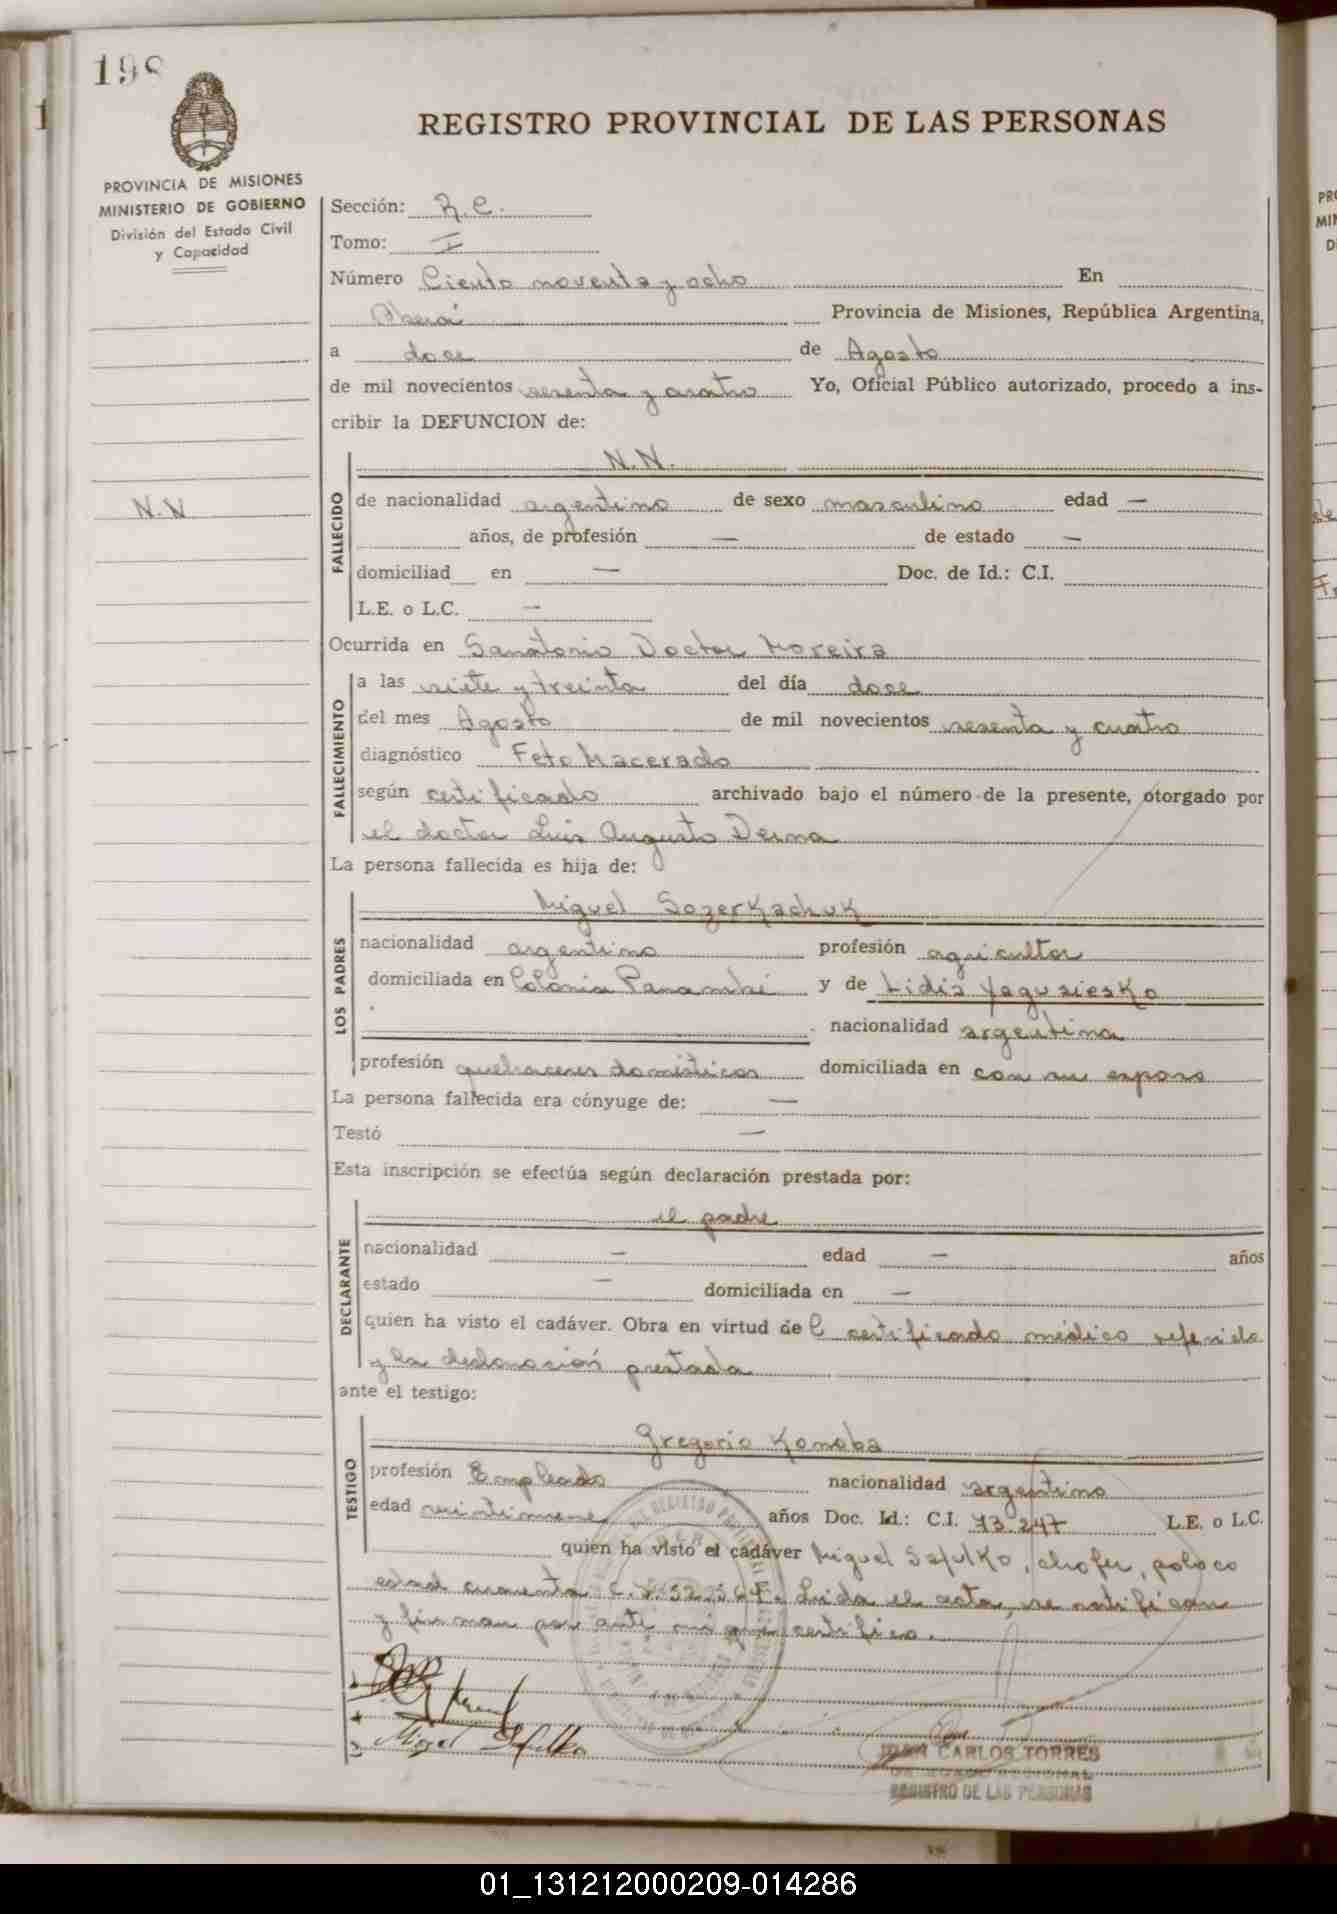 198
REGISTRO PROVINCIAL DE LAS PERSONAS
PROVINCIA DE MISIONES
MINISTERIO DE GOBIERNO
División del Estado Civil
y Capacidad
N.N
Sección: R.C.
Tomo: I
Número Ciento noventa y ocho En
Oberá Provincia de Misiones, República Argentina,
a doce de Agosto
de mil novecientos sesenta y cuatro Yo, Oficial Público autorizado, procedo a ins-
cribir la DEFUNCION de:
N.N.
FALLECIDO
de nacionalidad argentino de sexo masculino edad —
años, de profesión — de estado —
domiciliad en — Doc. de Id.: C.I.
L.E. o L.C. —
Ocurrida en Sanatorio Doctor Moreira
FALLECIMIENTO
a las siete y treinta del día doce
del mes Agosto de mil novecientos sesenta y cuatro
diagnóstico Feto Macerado
según certificado archivado bajo el número de la presente, otorgado por
el doctor Luis Augusto Derna
La persona fallecida es hija de:
LOS PADRES
Miguel Sozerkachuk
nacionalidad argentino profesión agricultor
domiciliada en Colonia Panambí y de Lidia
nacionalidad argentina
profesión quehaceres domésticos domiciliada en con su esposo
La persona fallecida era cónyuge de: —
Testó —
Esta inscripción se efectúa según declaración prestada por:
DECLARANTE
el padre
nacionalidad — edad — años
estado — domiciliada en —
quien ha visto el cadáver. Obra en virtud del certificado médico referido
y la declaración prestada
ante el testigo:
TESTIGO
Gregorio Konoba
profesión Empleado nacionalidad argentino
edad veintinueve años Doc. Id.: C.I. 73.247 L.E. o L.C.
quien ha visto el cadáver Miguel Safulko, chofer, polaco
edad cuarenta C.I. Leída el acta, se ratifican
y firman por ante mi que certifico.
Miguel Safulko
JUAN CARLOS TORRES
REGISTRO DE LAS PERSONAS
01_131212000209-014286